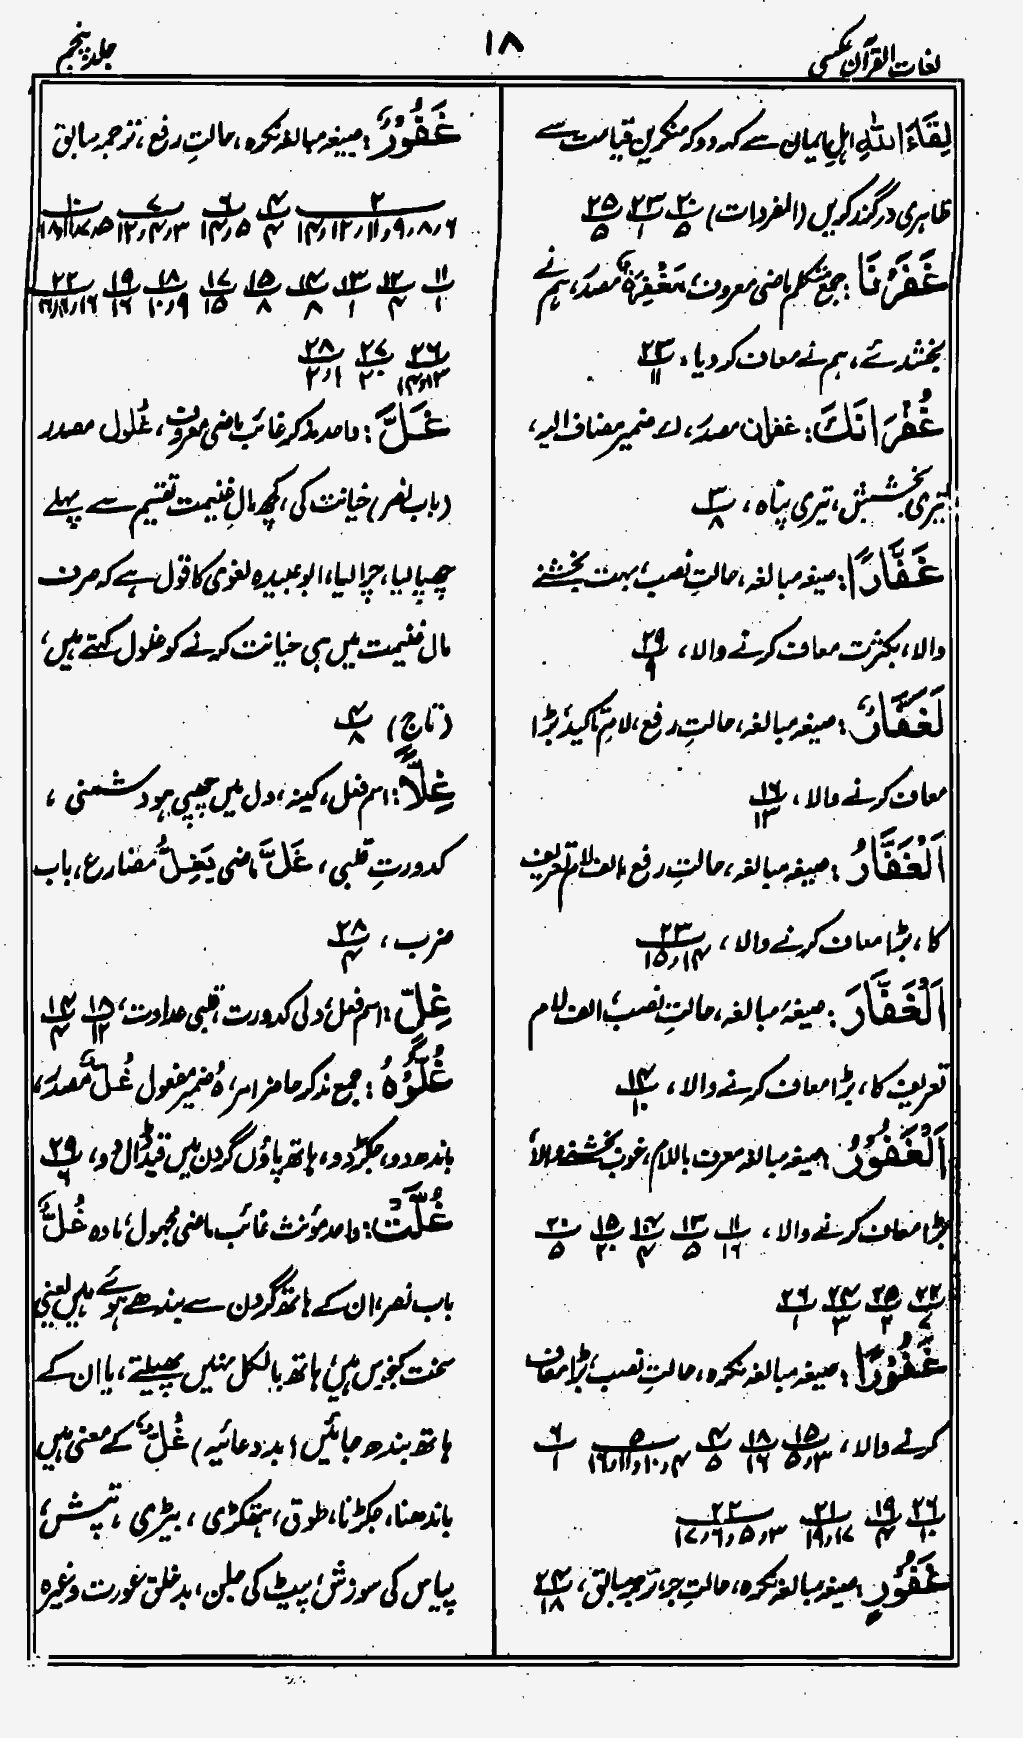 لغات القرآن عکسی
۱۸
جلد پنجم
لِقَاءَ اللّٰهِ اہلِ ایمان سے کہہ دو کہ منکرینِ قیامت سے
ظاہری درگذر کریں (المفردات) ۲۰/۵ ۲۳/۱ ۲۵/۵
غَفَرْنَا: جمع متکلم ماضی معروف، مَغْفِرَۃٌ مصدر، ہم نے
بخشدئے، ہم نے معاف کر دیا، ۲۳/۱۱
غُفْرَانَكَ: غفران مصدر، ك ضمیر مضاف الیہ،
تیری بخشش، تیری پناہ، ۳/۸
غَفَّارًا: صیغہ مبالغہ، حالتِ نصب، بہت بخشنے
والا، بکثرت معاف کرنے والا، ۲۹/۹
لَغَفَّارٌ: صیغہ مبالغہ، حالتِ رفع، لامِ تاکید، بڑا
معاف کرنے والا، ۱۶/۱۳
اَلْغَفَّارُ: صیغہ مبالغہ، حالتِ رفع، الف لام تعریف
کا، بڑا معاف کرنے والا، ۲۳/۱۴٫۱۵
اَلْغَفَّارَ: صیغہ مبالغہ، حالتِ نصب، الف لام
تعریف کا، بڑا معاف کرنے والا، ۲۴/۱۰
اَلْغَفُوْرُ: صیغہ مبالغہ معرف باللام، خوب بخشنے والا،
بڑا معاف کرنے والا، ۱۱/۱۶ ۱۳/۵ ۱۴/۴ ۱۵/۲۰ ۲۰/۵
۲۲/۷ ۲۵/۲ ۲۴/۳ ۲۶/۱
غَفُوْرًا: صیغہ مبالغہ نکرہ، حالتِ نصب، بڑا معاف
کرنے والا، ۱۵/۳٫۵ ۱۸/۱۶ ۴/۵ ۵/۴٫۱۰٫۱۱٫۱۶ ۶/۱
۲۶/۱۰ ۱۹/۴ ۲۱/۱۷٫۱۹ ۲۲/۳٫۵٫۶٫۱۷
غَفُوْرٍ: صیغہ مبالغہ نکرہ، حالتِ جر، ترجمہ سابق، ۲۴/۱۸
غَفُوْرٌ: صیغہ مبالغہ نکرہ، حالتِ رفع، ترجمہ سابق
۲/۶٫۸٫۹٫۱۱٫۱۲٫۱۴ ۴/۴ ۶/۵٫۱۴ ۷/۳٫۴٫۱۲ ۱۰
۱۱/۱ ۱۲/۴ ۱۳/۱ ۱۴/۸ ۱۵/۸ ۱۷/۱۵ ۱۸/۹٫۱۰ ۱۹/۱۶ ۲۲
۲۶/۱۳٫۱۴ ۲۷/۲۰ ۲۸/۱٫۲
غَلَّ: واحد مذکر غائب ماضی معروف، غُلول مصدر
(باب نصر) خیانت کی، کچھ مالِ غنیمت تقسیم سے پہلے
چھپا لیا، چرا لیا، ابوعبیدہ لغوی کا قول ہے کہ صرف
مال غنیمت میں ہی خیانت کرنے کو غلول کہتے ہیں،
(تاج) ۴/۸
غِلًّا: اسم فعل، کینہ، دل میں چھپی ہو دشمنی،
کدورتِ قلبی، غَلَّ ماضی یَغِلُّ مضارع، باب
ضرب، ۲۸/۴
غِلٍّ: اسم فعل، دلی کدورت، قلبی عداوت، ۱۵/۱۲ ۱۴/۴
غُلُّوْهُ: جمع مذکر حاضر امر، ہٗ ضمیر مفعول غُلٌّ مصدر،
باندھ دو، جکڑ دو، ہاتھ پاؤں گردن میں قید ڈال دو، ۲۹/۶
غُلَّتْ: واحد مؤنث غائب ماضی مجہول، مادہ غُلٌّ
باب نصر، ان کے ہاتھ گردن سے بندھے ہوئے ہیں یعنی
سخت کنجوس ہیں، ہاتھ بالکل نہیں پھیلتے، یا ان کے
ہاتھ بندھ جائیں (بددعائیہ) غُلٌّ کے معنی ہیں
باندھنا، جکڑنا، طوق، ہتھکڑی، بیڑی، تپش،
پیاس کی سوزش، پیٹ کی جلن، بدخلق عورت وغیرہ